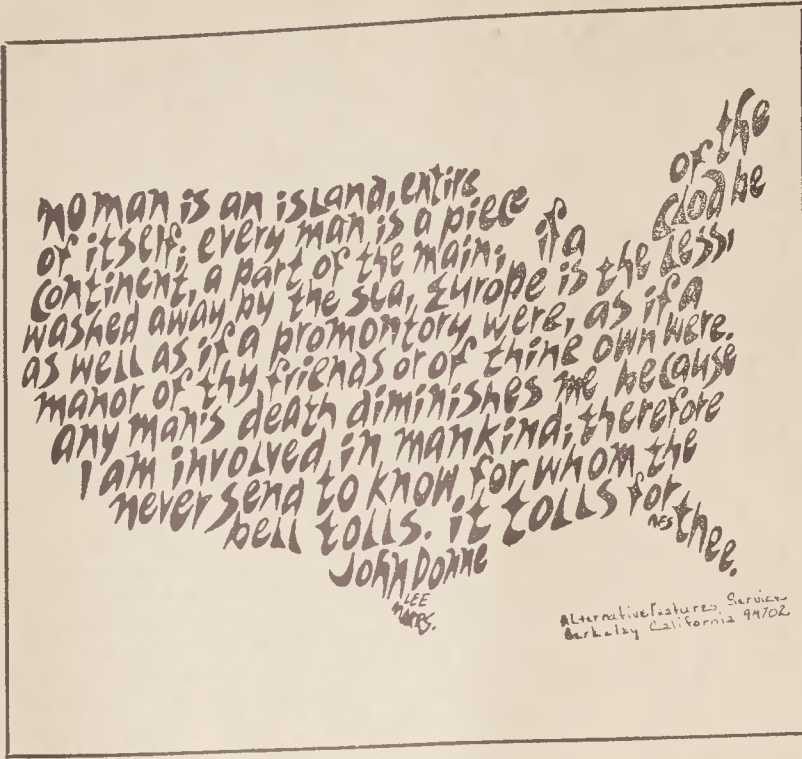 of the
no man is an island, entire
clod be
of itself; every man is a piece
if a
continent, a part of the main;
is the less,
washed away by the sea, Europe
as well as if a promontory were, as if a
manor of thy friends or of thine own were.
any man's death diminishes me because
I am involved in mankind; therefore
never send to know for whom the
bell tolls. it tolls for
thee.
AFS
John Donne
LEE
Alternative Features Service
Berkeley California 94702